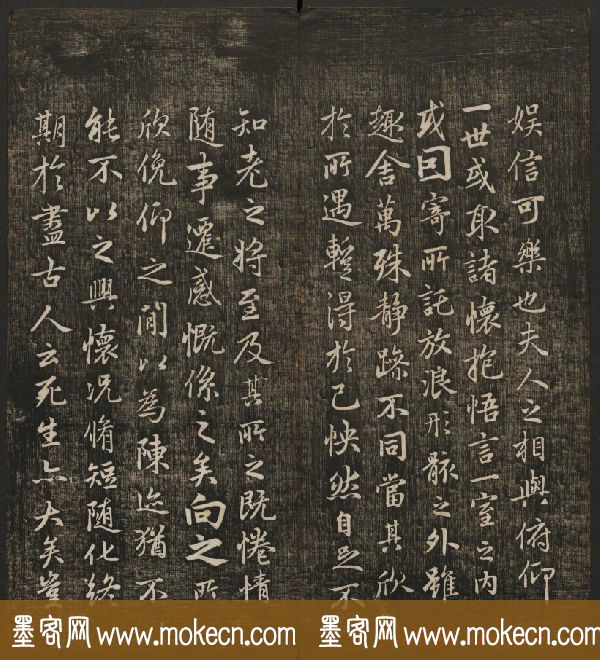 娯信可樂也夫人之相與俯仰
一世或取諸懷抱悟言一室之内
或因寄所託放浪形骸之外雖
趣舍萬殊静躁不同當其欣
於所遇蹔得於己怏然自足不
知老之將至及其所之既惓情
随事遷感慨係之矣向之所
欣俛仰之閒以為陳迹猶不
能不以之興懷况脩短随化終
期於盡古人云死生亦大矣豈
墨客网 www.mokecn.com 墨客网 www.mokecn.com